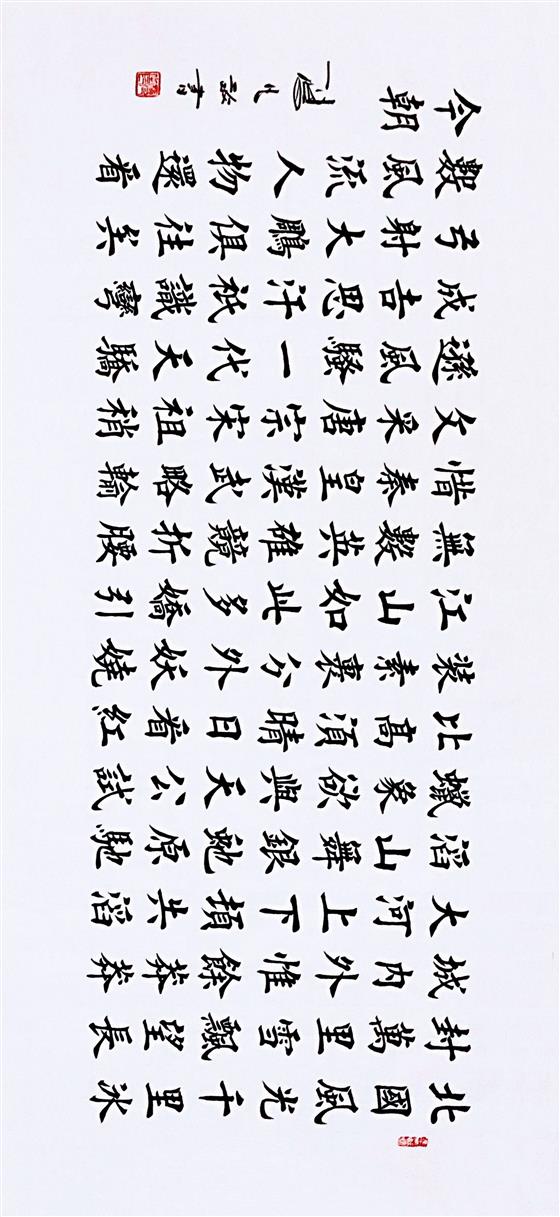 北國風光千里冰
封萬里雪飄望長
城內外惟餘莽莽
大河上下頓失滔
滔山舞銀蛇原馳
蠟象欲與天公試
比高須晴日看紅
裝素裹分外妖嬈
江山如此多嬌引
無數英雄競折腰
惜秦皇漢武略輸
文采唐宗宋祖稍
遜風騷一代天驕
成吉思汗祇識彎
弓射大鵰俱往矣
數風流人物還看
今朝
書